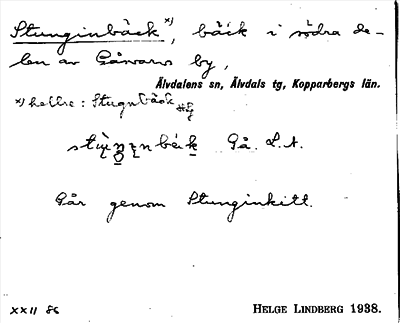 Stunginbäck x), bäck i södra de-
len av Gåsvarvs by,
Älvdalens sn, Älvdals tg, Kopparbergs län.
x) hellre: Stugnbäck
Gå. L.A.
Går genom Stunginkitt.
XXII 86
HELGE LINDBERG 1938.